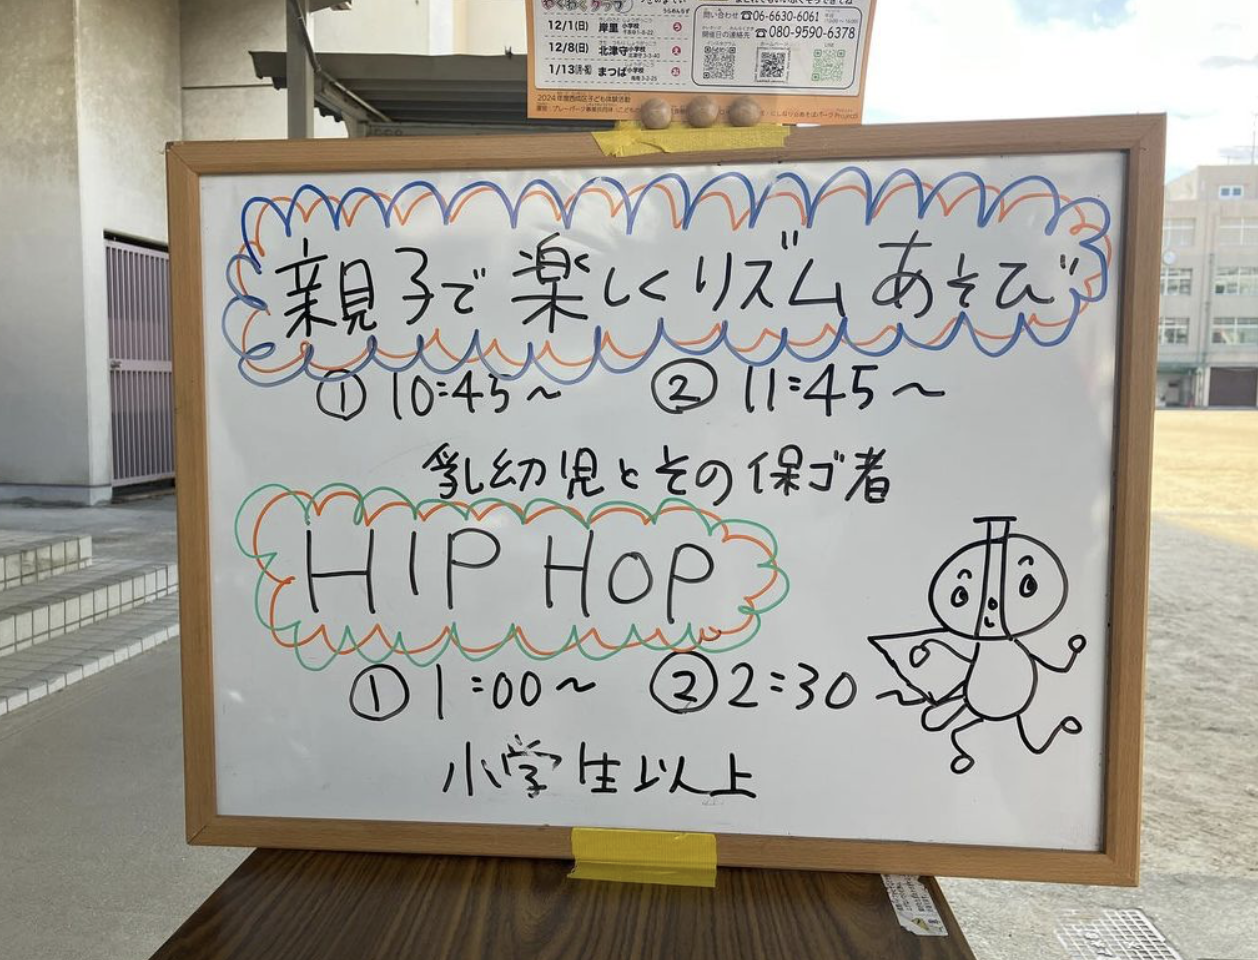 わくわくクラブ
12/1(日) 岸里小学校
12/8(日) 北津守小学校
1/13(月・祝) まつば小学校
問い合わせ☎06-6630-6061
開催日の連絡先 ☎080-9590-6378
インスタグラム ホームページ LINE
2024年度西成区子ども体験活動
親子で楽しくリズムあそび
① 10:45~ ② 11:45~
乳幼児とその保ゴ者
HIP HOP
① 1:00~ ② 2:30~
小学生以上